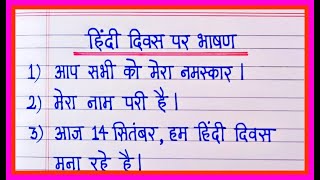 हिंदी दिवस पर भाषण
1) आप सभी को मेरा नमस्कार।
2) मेरा नाम परी है।
3) आज 14 सितंबर, हम हिंदी दिवस
मना रहे है।